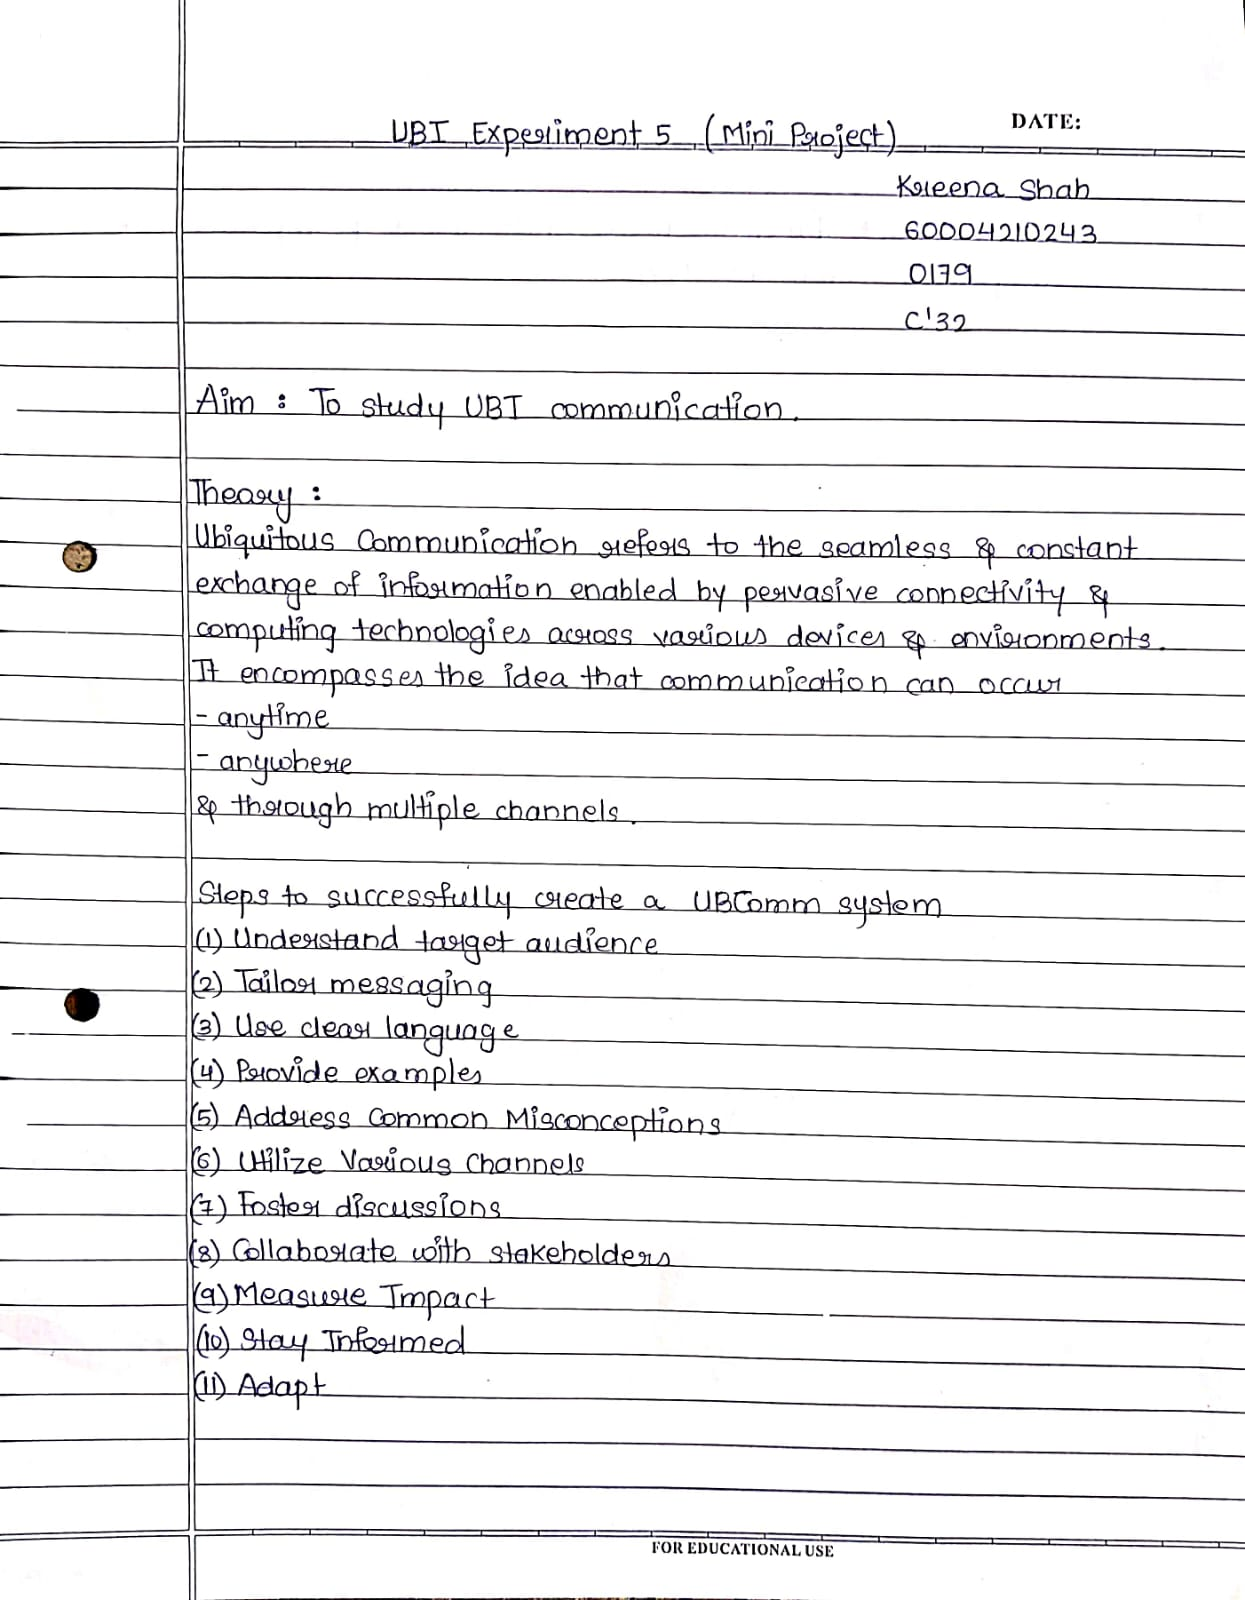 DATE:
UBI Experiment 5 (Mini Project)
Kreena Shah
60004210243
D179
C'32
Aim : To study UBI communication.
Theory :
Ubiquitous Communication refers to the seamless & constant
exchange of information enabled by pervasive connectivity &
computing technologies across various devices & environments.
It encompasses the idea that communication can occur
- anytime
- anywhere
& through multiple channels.
Steps to successfully create a UBComm system
(1) Understand target audience
(2) Tailor messaging
(3) Use clear language
(4) Provide examples
(5) Address Common Misconceptions
(6) Utilize Various Channels
(7) Foster discussions
(8) Collaborate with stakeholders
(9) Measure Impact
(10) Stay Informed
(11) Adapt
FOR EDUCATIONAL USE